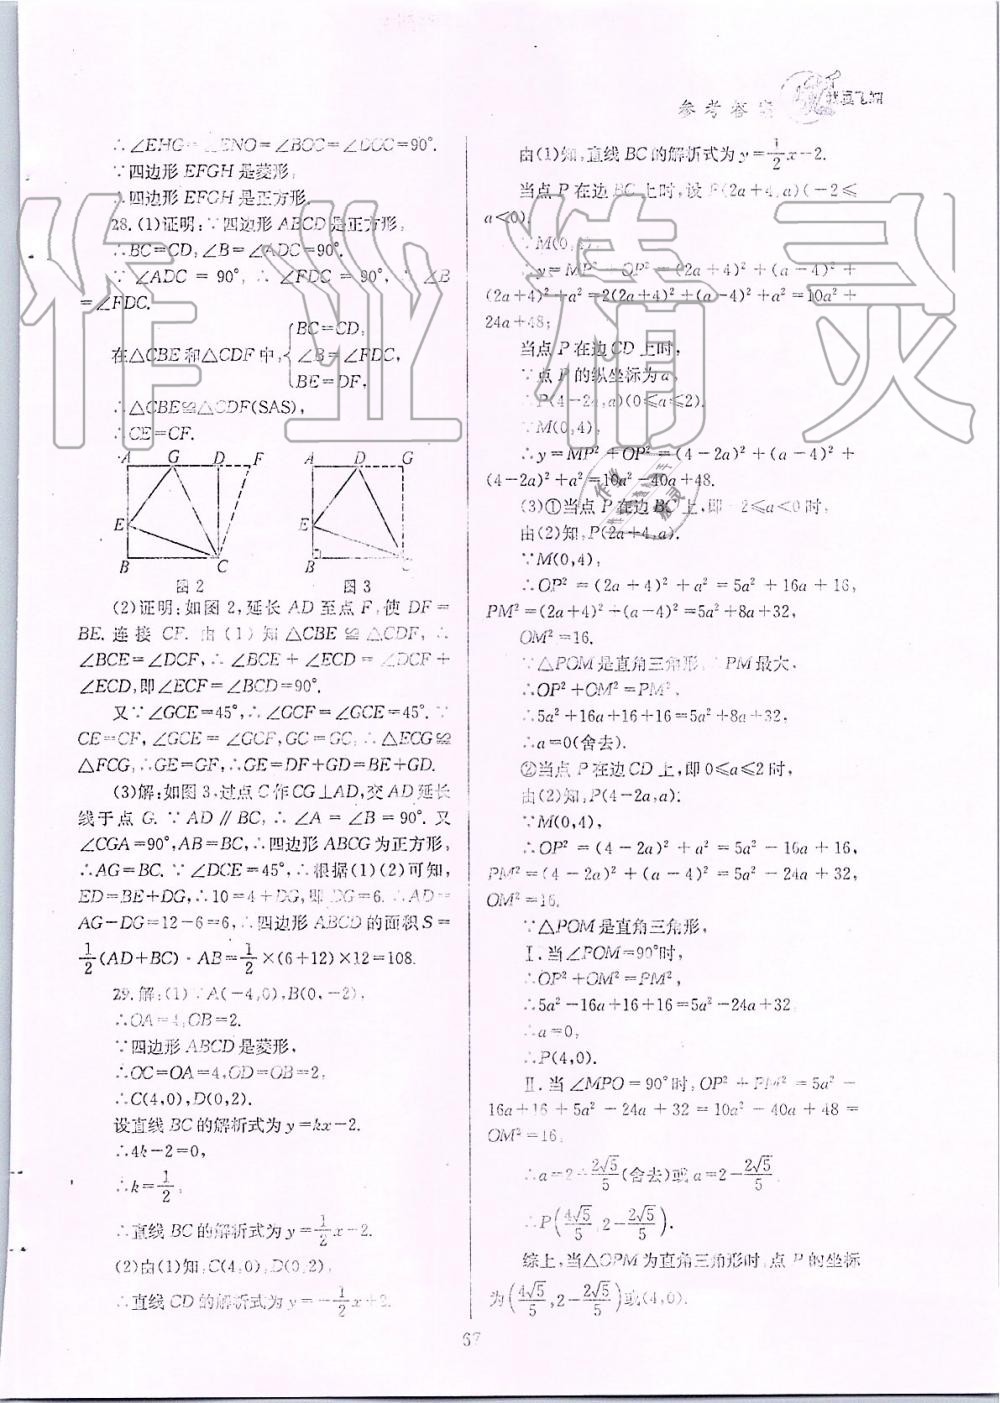 参考答案
∴∠EHG=∠ENO=∠BOC=∠DOC=90°.
∵四边形 EFGH 是菱形,
∴四边形 EFGH 是正方形.
28.(1)证明:∵四边形 ABCD 是正方形,
∴BC=CD,∠B=∠ADC=90°.
∵ ∠ADC = 90°, ∴ ∠FDC = 90°, ∴ ∠B
=∠FDC.
在△CBE 和△CDF 中,{BC=CD, ∠B=∠FDC, BE=DF,
∴△CBE≌△CDF(SAS),
∴CE=CF.
A G D F
E
B C
图 2
A D G
E
B C
图 3
(2)证明:如图 2,延长 AD 至点 F,使 DF=
BE. 连接 CF. 由 (1) 知 △CBE ≌ △CDF, ∴
∠BCE=∠DCF,∴∠BCE+∠ECD=∠DCF+
∠ECD,即∠ECF=∠BCD=90°.
又∵∠GCE=45°,∴∠GCF=∠GCE=45°. ∵
CE=CF,∠GCE=∠GCF,GC=GC,∴△ECG≌
△FCG,∴GE=GF,∴GE=DF+GD=BE+GD.
(3)解:如图 3,过点 C 作 CG⊥AD,交 AD 延长
线于点 G. ∵AD∥BC,∴∠A=∠B=90°. 又
∠CGA=90°,AB=BC,∴四边形 ABCG 为正方形,
∴AG=BC. ∵∠DCE=45°,∴根据(1)(2)可知,
ED=BE+DG,∴10=4+DG,即 DG=6. ∴AD=
AG-DG=12-6=6,∴四边形 ABCD 的面积 S=
1/2(AD+BC)·AB=1/2×(6+12)×12=108.
29.解:(1)∵A(-4,0),B(0,-2),
∴OA=4,OB=2.
∵四边形 ABCD 是菱形,
∴OC=OA=4,OD=OB=2,
∴C(4,0),D(0,2).
设直线 BC 的解析式为 y=kx-2.
∴4k-2=0,
∴k=1/2,
∴直线 BC 的解析式为 y=1/2x-2.
(2)由(1)知,C(4,0),D(0,2),
∴直线 CD 的解析式为 y=-1/2x+2.
由(1)知,直线 BC 的解析式为 y=1/2x-2.
当点 P 在边 BC 上时,设 P(2a+4,a)(-2≤
a<0).
∵M(0,4),
∴y=MP²+OP²=(2a+4)²+(a-4)²+
(2a+4)²+a²=2(2a+4)²+(a-4)²+a²=10a²+
24a+48;
当点 P 在边 CD 上时,
∵点 P 的纵坐标为 a,
∴P(4-2a,a)(0≤a≤2).
∵M(0,4),
∴y=MP²+OP²=(4-2a)²+(a-4)²+
(4-2a)²+a²=10a²-40a+48.
(3)①当点 P 在边 BC 上,即-2≤a<0时,
由(2)知,P(2a+4,a).
∵M(0,4),
∴OP²=(2a+4)²+a²=5a²+16a+16,
PM²=(2a+4)²+(a-4)²=5a²+8a+32,
OM²=16.
∵△POM 是直角三角形,∴PM最大,
∴OP²+OM²=PM²,
∴5a²+16a+16+16=5a²+8a+32,
∴a=0(舍去).
②当点 P 在边 CD 上,即 0≤a≤2 时,
由(2)知,P(4-2a,a).
∵M(0,4),
∴OP²=(4-2a)²+a²=5a²-16a+16,
PM²=(4-2a)²+(a-4)²=5a²-24a+32,
OM²=16.
∵△POM 是直角三角形,
Ⅰ.当∠POM=90°时,
∴OP²+OM²=PM²,
∴5a²-16a+16+16=5a²-24a+32,
∴a=0,
∴P(4,0).
Ⅱ.当∠MPO=90°时,OP²+PM²=5a²-
16a+16+5a²-24a+32=10a²-40a+48=
OM²=16,
∴a=2+2√5/5(舍去)或 a=2-2√5/5,
∴P(4√5/5,2-2√5/5).
综上,当△OPM 为直角三角形时,点 P 的坐标
为(4√5/5,2-2√5/5)或(4,0).
67
作业精灵